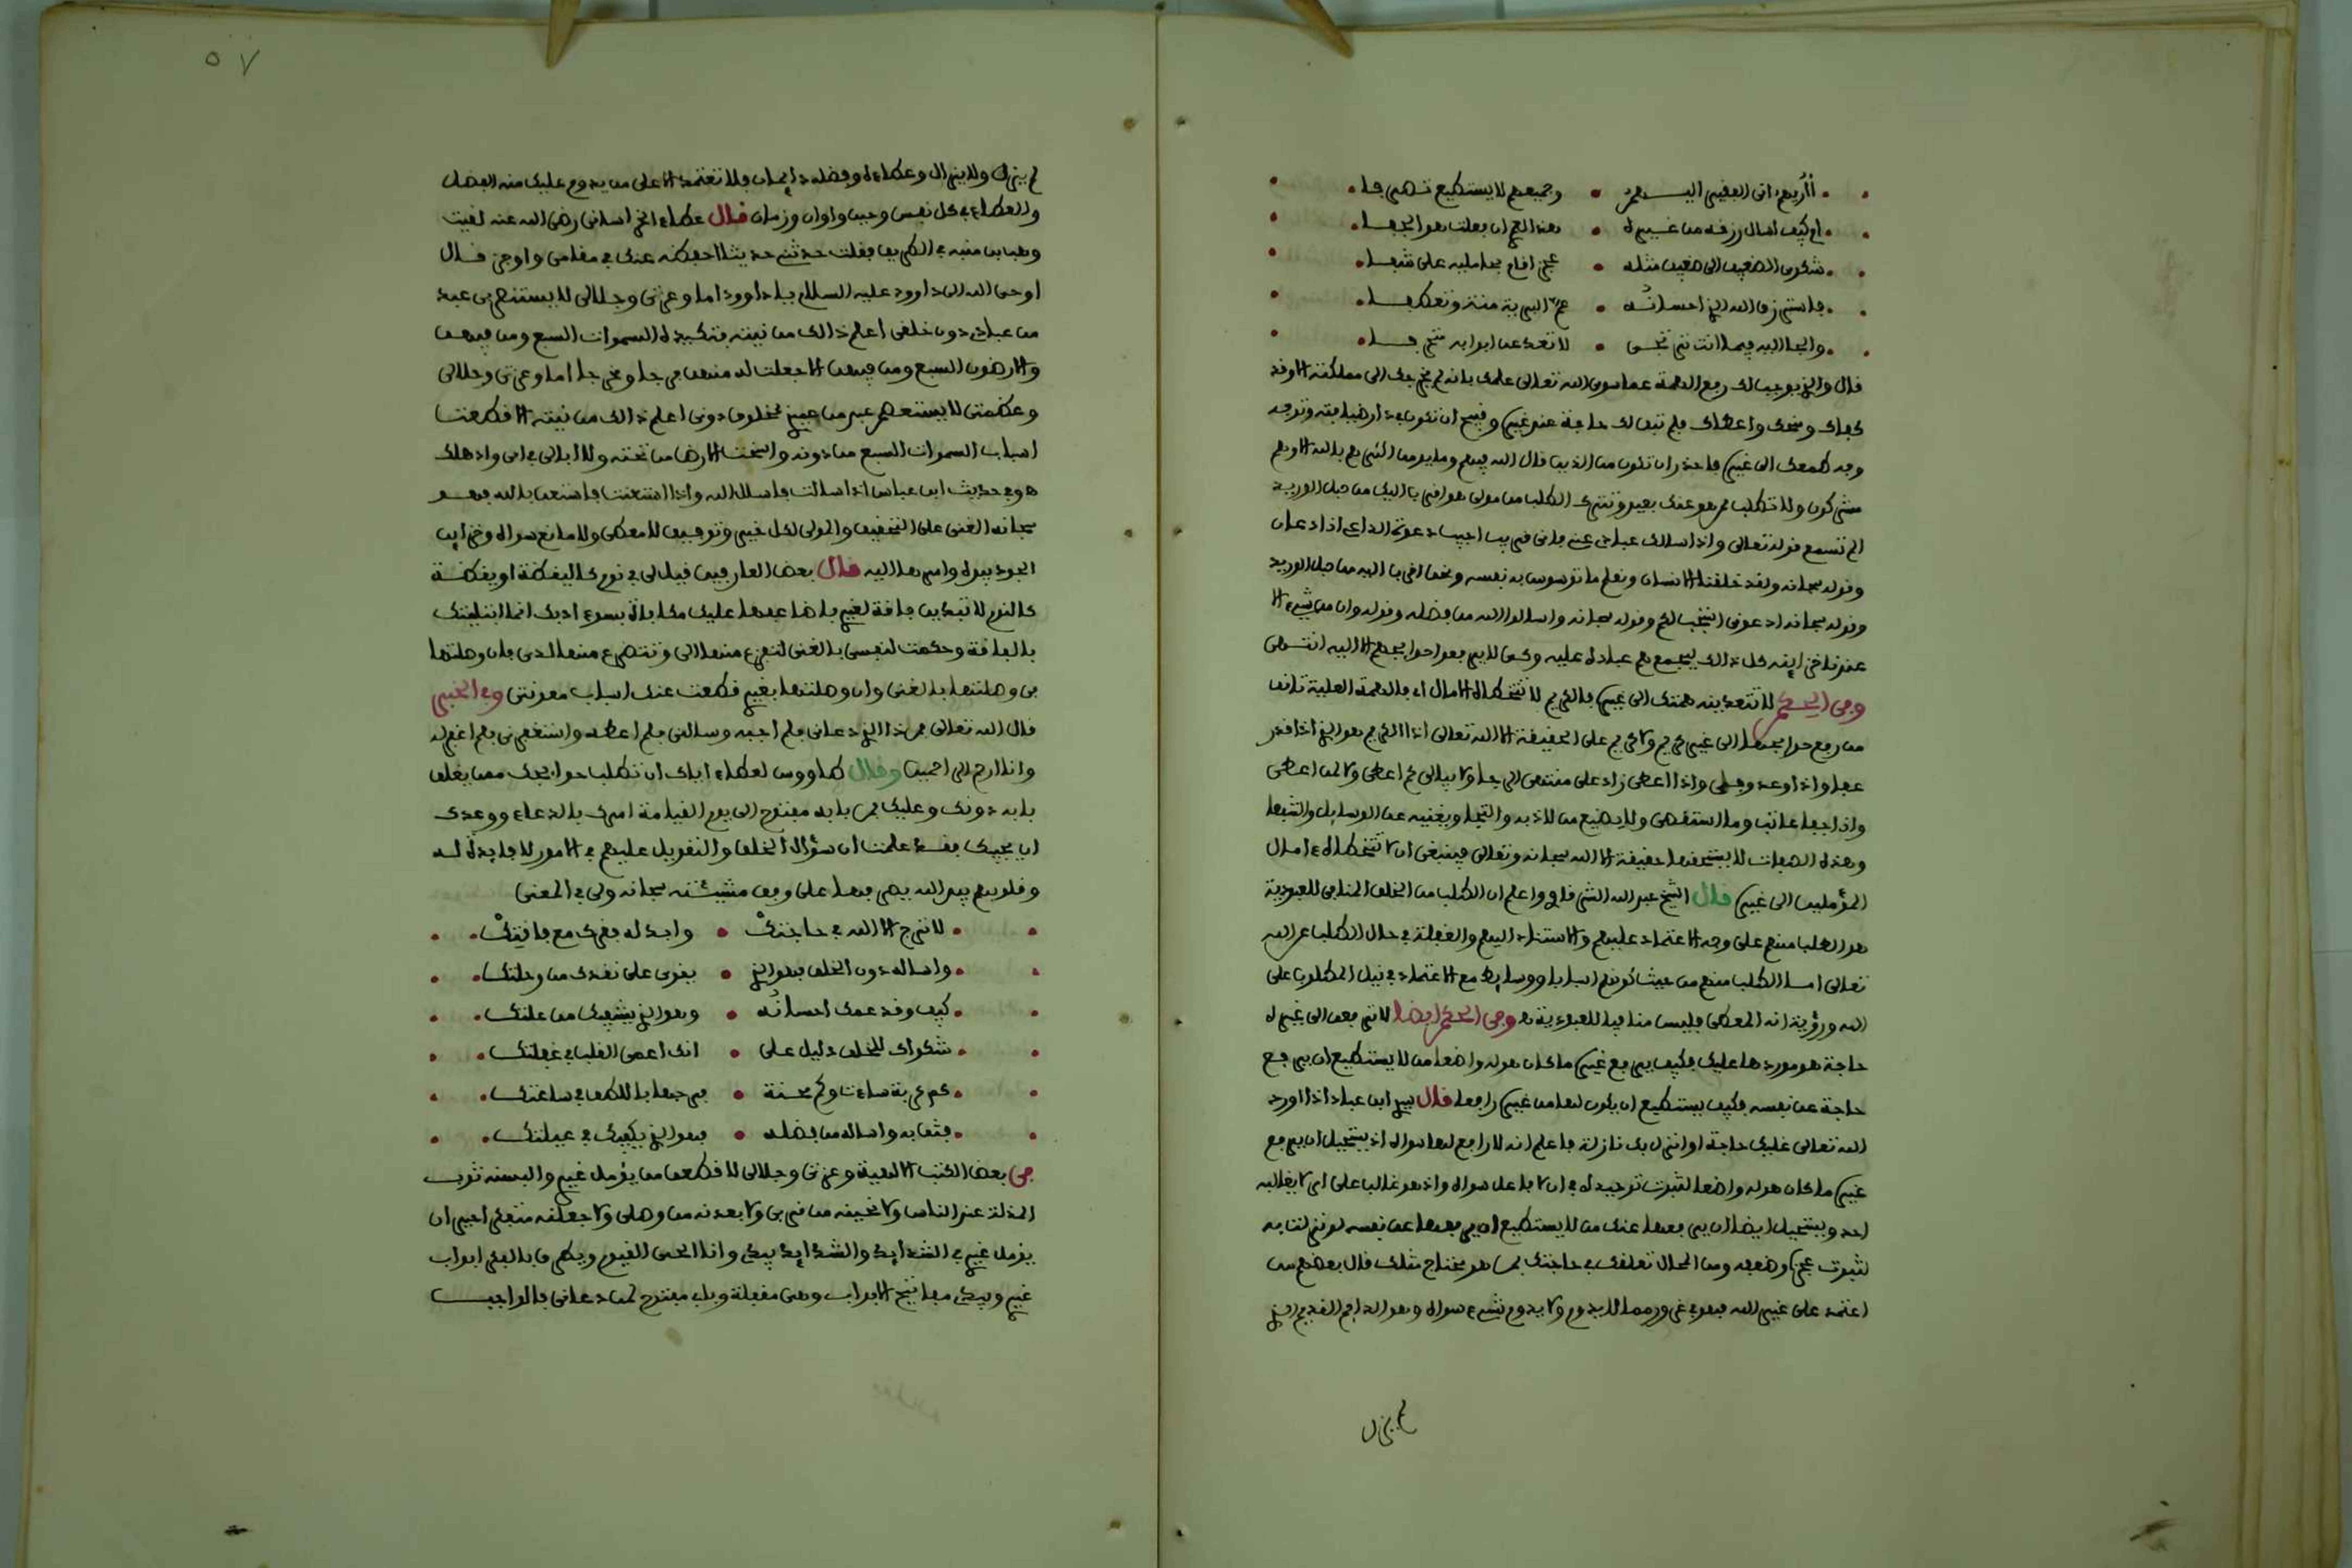 أأريهم اني الفقير اليهم وجميعهم لا يستطيع تصرفا
ام كيف اسال رزقه من غيره هذا لعمري ان فعلت هو الجفا
شكوى الضعيف الى ضعيف مثله عجز اقام بحامليه على شفا
فاسترزق الله الذي احسانه عم البرية منة وتعطفا
والجا اليه فيما انت ترتجي لا تعد عن ابوابه متحرفا
قال والذي يوجب لك رفع الهمة عما سوى الله تعالى علمك بانه لم يخرجك الى مملكته الا وقد
كفاك ومنحك واعطاك فلم تبق لك حاجة عند غيره وقبيح ان تكون في دار ضيافته وتوجه
وجه طمعك الى غيره فاحذر ان تكون من الذين قال الله فيهم وما يومن اكثرهم بالله الا وهم
مشركون ولا تطلب ممن هو عنك بعيد وتترك الطلب من مولى هو اقرب اليك من حبل الوريد
الم تسمع قوله تعالى واذا سالك عبادي عني فاني قريب اجيب دعوة الداعي اذا دعان
وقوله سبحانه ولقد خلقنا الانسان ونعلم ما توسوس به نفسه ونحن اقرب اليه من حبل الوريد
وقوله سبحانه ادعوني استجب لكم وقوله سبحانه واسالوا الله من فضله وقوله وان من شيء الا
عندنا خزاينه كل ذالك ليجمع هم عباده عليه وكي لا يرفعوا حوايجهم الا اليه انتهى
وفي الحكم لا تتعد نية همتك الى غيره فالكريم لا تتخطاه الامال اي فالهمة العلية تانف
من رفع حوايجها الى غير كريم ولا كريم على الحقيقة الا الله تعالى اذ الكريم هو الذي اذا قدر
عفا واذا وعد وفى واذا اعطى زاد على منتهى الرجا ولا يبالي كم اعطى ولا لمن اعطى
واذا جفا عاتب وما استقصى ولا يضيع من لاذ به والتجا ويغنيه عن الوسايل والشفعا
وهذه الصفات لا يستحقها حقيقة الا الله سبحانه وتعالى فينبغي ان لا تتخطاه امال
المؤملين الى غيره قال الشيخ عبد الله الشرقاوي واعلم ان الطلب من الخلق المنافي للعبودية
هو الطلب منهم على وجه الاعتماد عليهم والاستناد اليهم والغفلة في حال الطلب عن الله
تعالى اما الطلب منهم من حيث كونهم اسبابا ووسايط مع الاعتماد في نيل المطلوب على
الله ورؤية انه المعطي فليس منافيا للعبودية وفي الحكم ايضا لا ترفعن الى غيره
حاجة هو موردها عليك فكيف يرفع غيره ما كان هو له واضعا من لا يستطيع ان يرفع
حاجة عن نفسه فكيف يستطيع ان يكون لها من غيره رافعا قال سيدي ابن عباد اذا اورد
الله تعالى عليك حاجة او انزل بك نازلة فاعلم انه لا رافع لها سواه اذ يستحيل ان يرفع
غيره ما كان هو له واضعا لثبوت توحيده في ان لا فاعل سواه واذ هو غالب على امره لا يغالبه
احد ويستحيل ايضا ان يرفعها عنك من لا يستطيع ان يرفعها عن نفسه لو نزلت به
لثبوت عجزه وضعفه ومن المحال تعلقك في حاجتك بمن هو محتاج مثلك قال بعضهم من
اعتمد على غير الله فهو في غرور مما لا يدوم ولا يدوم شيء سواه وهو الدايم القديم الذي
لم يزل
٥٧
لم يزل ولا يزال وعطاءه وفضله دايمان فلا تعتمد الا على من يدوم عليك منه الفضل
والعطاء في كل نفس وحين واوان وزمان قال عطاء الخراساني رضي الله عنه لقيت
وهب بن منبه في الطريق فقلت حدثني حديثا احفظه عنك في مقامي واوجز قال
اوحى الله الى داوود عليه السلام يا داوود اما وعزتي وجلالي لا يستنصر بي عبد
من عبادي دون خلقي اعلم ذالك من نيته فتكيده السموات السبع ومن فيهن
والارضون السبع ومن فيهن الا جعلت له منهن فرجا ومخرجا اما وعزتي وجلالي
وعظمتي لا يستعصم عبد من عبيدي بمخلوق دوني اعلم ذالك من نيته الا قطعت
اسباب السموات السبع من دونه واسخت الارض من تحته ولا ابالي في اي واد هلك
هو وفي حديث ابن عباس اذا سالت فاسال الله واذا استعنت فاستعن بالله فهو
سبحانه الغني على التحقيق والمولى لكل خير وتوفيق لا معطي ولا مانع سواه وخزاين
الجود بيده وامرها اليه قال بعض العارفين قيل لي في نوم كاليقظة او يقظة
كالنوم لا تبدين فاقة لغيري فاضاعفها عليك مكافاة بسوء ادبك انما ابتليتك
بالفاقة وحكمت لنفسي بالغنى لتفزع منها الي وتتضرع منها لدي فان وصلتها
بي وصلتها بالغنى وان وصلتها بغيري قطعت عنك اسباب معونتي وفي الخبر
قال الله تعالى من ذا الذي دعاني فلم اجبه وسالني فلم اعطه واستغفرني فلم اغفر له
وانا ارحم الراحمين وقال طاووس لعطاء اياك ان تطلب حوايجك ممن يغلق
بابه دونك وعليك بمن بابه مفتوح الى يوم القيامة امرك بالدعاء ووعدك
ان يجيبك فقد علمت ان سؤال الخلق والتعويل عليهم في الامور لا فايدة له
وقلوبهم بيد الله يصرفها على وفق مشيئته سبحانه ولي في المعنى
لا ترج الا الله في حاجتك وابد له فقرك مع فاقتك
واساله دون الخلق فهو الذي يقوى على نقذك من وحلتك
كيف وقد عمك احسانه وهو الذي يشفيك من علتك
شكواك للخلق دليل على انك اعمى القلب في غفلتك
كم كربة ساءت وكم محنة فرجها باللطف في ساعتك
فثق به واساله من فضله فهو الذي يكفيك في عيلتك
في بعض الكتب الالهية وعزتي وجلالي لا قطعن من يؤمل غيري والبسنه ثوب
المذلة عند الناس ولا نحينه من قربي ولا بعدنه من وصلي ولا جعلنه متفكرا حيران
يؤمل غيري في الشدايد والشدايد بيدي وانا الحي القيوم ويطرق بالفكر ابواب
غيري وبيدي مفاتيح الابواب وهي مقفلة وبابي مفتوح لمن دعاني فالواجب